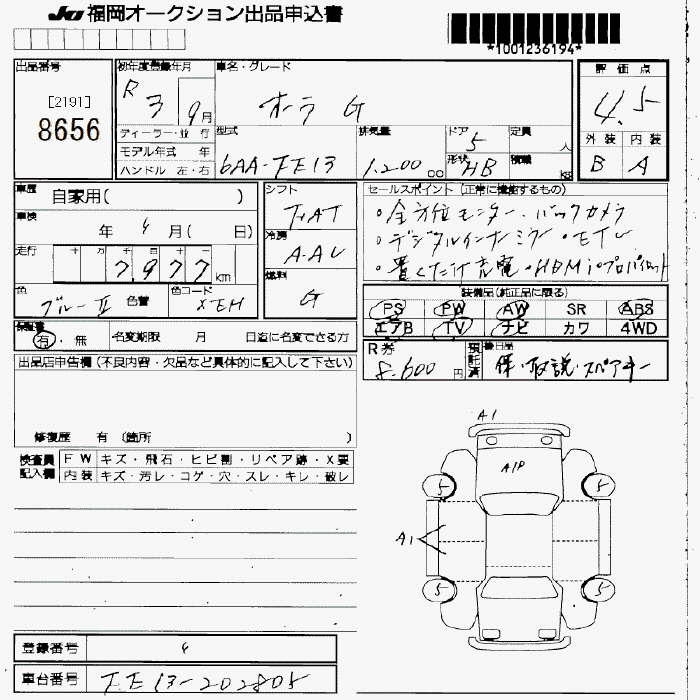 JU 福岡オークション出品申込書
*1001236194*
出品番号
[2191]
8656
初年度登録年月
R 3 9月
ディーラー・並行
モデル年式 年
ハンドル 左・右
車名・グレード
オーラ G
型式
6AA-FE13
排気量
1,200 cc
ドア
5
形状
HB
定員
人
積載
KG
評価点
4.5
外装 内装
B A
車歴 自家用( )
車検 年 9月( 日)
走行 十 万 千 百 十 一
7,977km
色 ブルーⅡ 色替 色コード XEH
シフト
FAT
冷房
AAC
燃料
G
セールスポイント(正常に機能するもの)
・全方位モニター・バックカメラ
・デジタルインナーミラー・
・置くだけ充電・HDMi・プロパイロット
装備品(純正品に限る)
PS PW AW SR ABS
エアB TV ナビ カワ 4WD
保証書
有・無 名変期限 月 日迄に名変できる方
R券
8,600円
預託済
後日品
保・取説・スペアキー
出品店申告欄(不良内容・欠品など具体的に記入して下さい)
修復歴 有 (箇所 )
検査員記入欄
FW キズ・飛石・ヒビ割・リペア跡・X要
内装 キズ・汚レ・コゲ・穴・スレ・キレ・破レ
A1
A1P
5 5
A1
5 5
登録番号
車台番号 FE13-202805